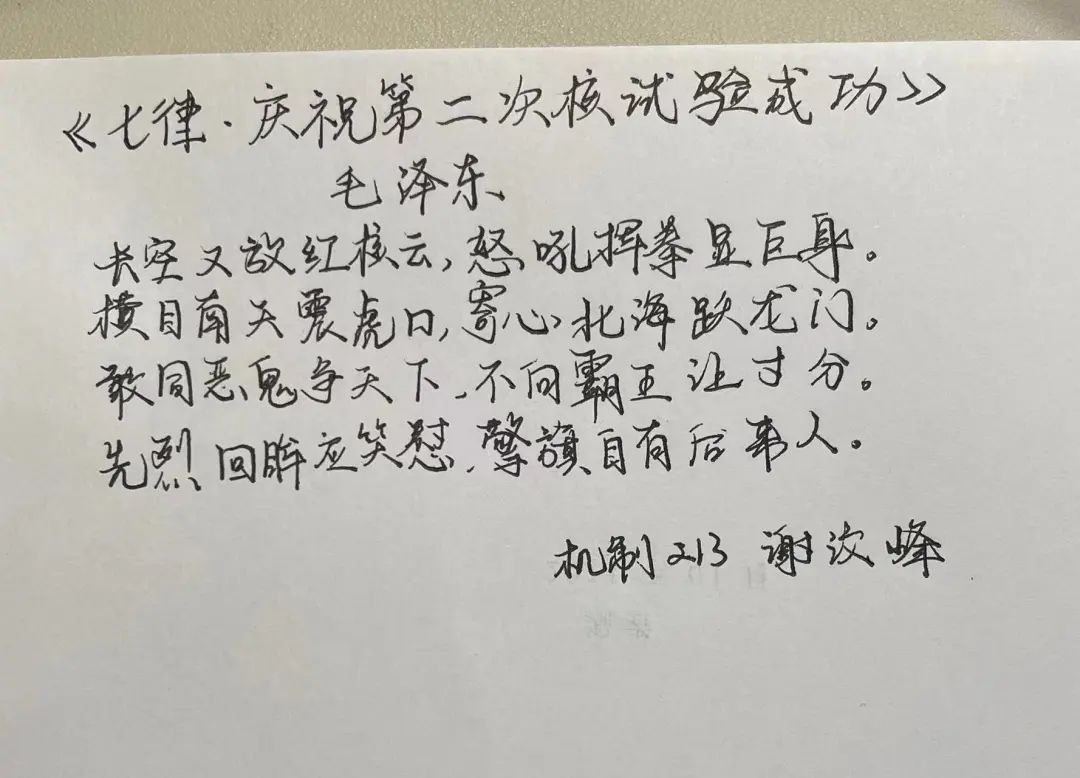 《七律·庆祝第二次核试验成功》
毛泽东
长空又放红核云,怒吼挥拳显巨身。
横目南天震虎口,寄心北海跃龙门。
敢同恶鬼争天下,不向霸王让寸分。
先烈回眸应笑慰,擎旗自有后来人。
机制213 谢汶峰